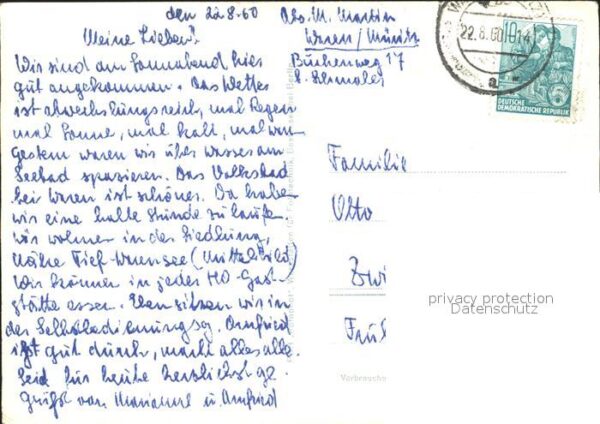 den 22.8.60
Meine Lieben!
Wir sind am Sonnabend hier
gut angekommen. Das Wetter
ist abwechslungsreich, mal Regen
mal Sonne, mal kalt, mal warm
Gestern waren wir über Wasser am
Seebad spazieren. Das Volksbad
bei Waren ist schöner. Da haben
wir eine halbe Stunde zu laufen
wir wohnen in der Siedlung,
Nähe Tief-Warensee (Mittelbild)
Wir können in jeder HO-Gast-
stätte essen. Eben sitzen wir in
der Selbstbedienungsg. Manfried
ißt gut durch, macht alles alle.
Seid für heute herzlichst ge-
grüßt von Marianne u. Manfried
Abs. M. Martin
Waren/Müritz
Buchenweg 17
b.
22.8.60
14
a
10
DEUTSCHE
DEMOKRATISCHE REPUBLIK
Familie
Otto
Zwi
privacy protection
Datenschutz
Verbrauche